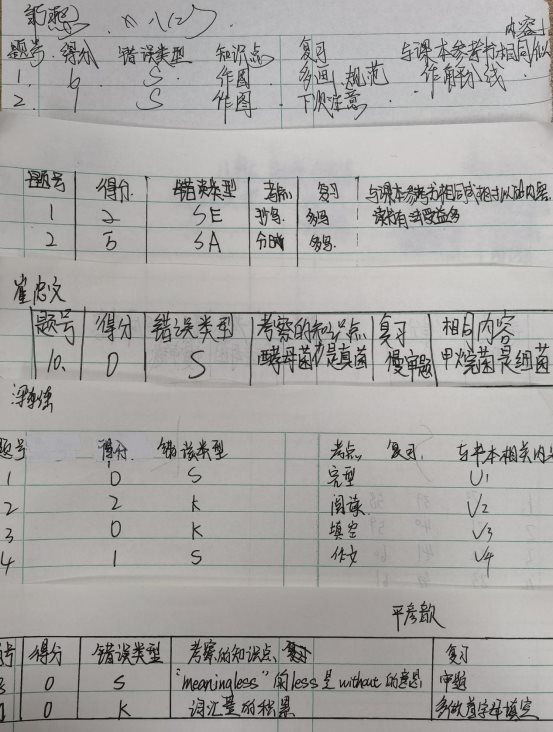 题号 得分 错误类型 知识点 复习 与课本参考书相同似
1. 6 S 作图 多画 规范 作角平分线
2. 9 S 作图 下次注意
题号 得分 错误类型 考点 复习 与课本参考书相同或相似的内容
1 2 SE 多写
2 5 SA 多写
题号 得分 错误类型 考察的知识点 复习 相同内容
10. 0 S 酵母菌是真菌 慢审题 甲烷菌是细菌
题号 得分 错误类型 考点 复习 与书本相关内
1 0 S 完型 U1
2 2 K 阅读 U2
3 0 K 填空 U3
4 1 S 作文 U4
平彦歆
号 得分 错误类型 考察的知识点 复习
3 0 S "meaningless"的less是without的意思 审题
0 K 词汇量的积累 多做首字母填空